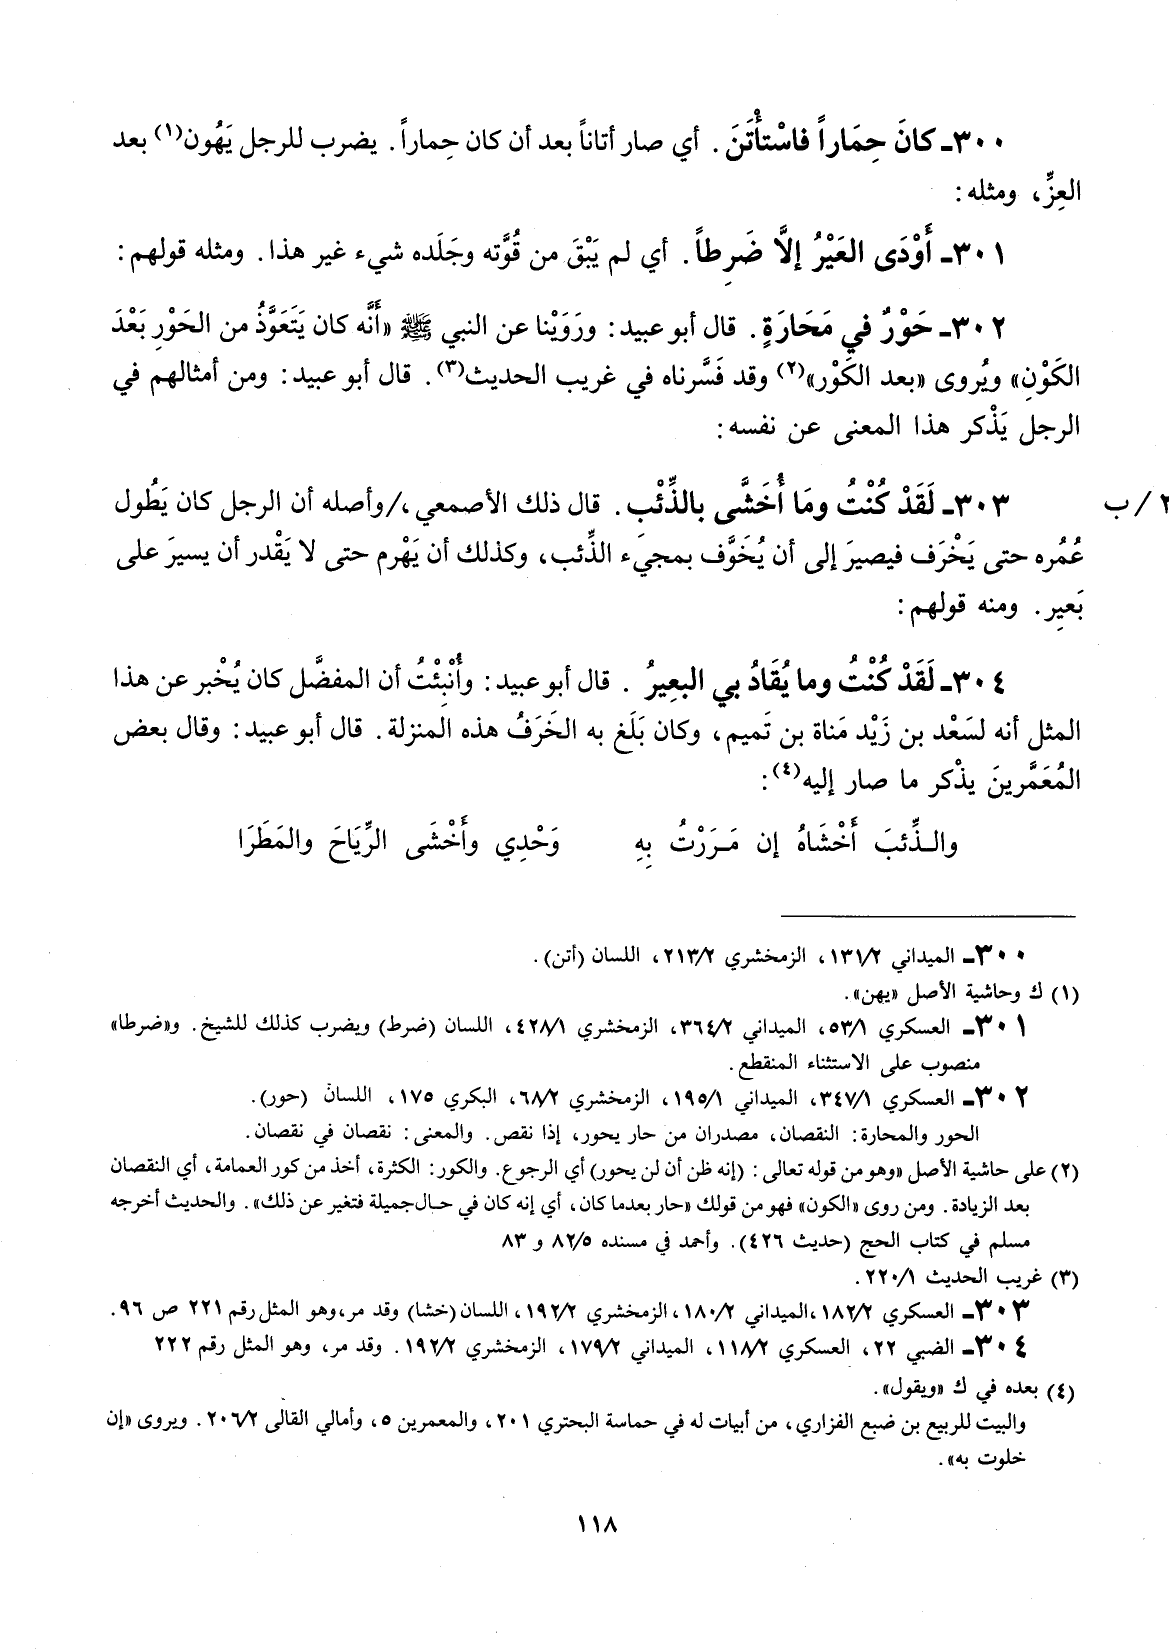 ٣٠٠ـ كانَ حِمَاراً فاسْتأْتَنَ. أي صار أتاناً بعد أن كان حِماراً. يضرب للرجل يَهُون(١) بعد
العِزِّ، ومثله:
٣٠١ـ أَوْدَى العَيْرُ إلاَّ ضَرِطاً. أي لم يَبْقَ من قُوَّته وجَلَده شيء غير هذا. ومثله قولهم:
٣٠٢ـ حَوْرٌ في مَحَارَةٍ. قال أبو عبيد: ورَوَيْنا عن النبي ﷺ «أَنَّه كان يَتَعَوَّذُ من الحَوْرِ بَعْدَ
الكَوْنِ» ويُروى «بعد الكَوْر»(٢) وقد فَسَّرناه في غريب الحديث(٣). قال أبو عبيد: ومن أمثالهم في
الرجل يَذْكر هذا المعنى عن نفسه:
٢/ب ٣٠٣ـ لَقَدْ كُنْتُ ومَا أُخَشَّى بالذِّئْبِ. قال ذلك الأصمعي،/وأصله أن الرجل كان يَطُول
عُمُره حتى يَخْرَف فيصيرَ إلى أن يُخَوَّف بمجيء الذِّئب، وكذلك أن يَهْرم حتى لا يَقْدر أن يسيرَ على
بَعيرِ. ومنه قولهم:
٣٠٤ـ لَقَدْ كُنْتُ وما يُقَادُ بي البعِيرُ . قال أبو عبيد: وأُنْبِئْتُ أن المفضَّل كان يُخْبر عن هذا
المثل أنه لسَعْد بن زَيْد مَناة بن تَميم، وكان بَلَغ به الخَرَفُ هذه المنزلة. قال أبو عبيد: وقال بعض
المُعَمَّرينَ يذْكر ما صار إليه(٤):
والـذِّئبَ أَخْشَاهُ إن مَـرَرْتُ بِهِ وَحْدِي وأَخْشَى الرِّيَاحَ والمَطَرَا
٣٠٠ـ الميداني ١٣١/٢، الزمخشري ٢١٣/٢، اللسان (أتن).
(١) ك وحاشية الأصل «يهن».
٣٠١ـ العسكري ٥٣/١، الميداني ٣٦٤/٢، الزمخشري ٤٢٨/١، اللسان (ضرط) ويضرب كذلك للشيخ. و«ضرطا»
منصوب على الاستثناء المنقطع.
٣٠٢ـ العسكري ٣٤٧/١، الميداني ١٩٥/١، الزمخشري ٦٨/٢، البكري ١٧٥، اللسان (حور).
الحور والمحارة: النقصان، مصدران من حار يحور، إذا نقص. والمعنى: نقصان في نقصان.
(٢) على حاشية الأصل «وهو من قوله تعالى: (إنه ظن أن لن يحور) أي الرجوع. والكور: الكثرة، أخذ من كور العمامة، أي النقصان
بعد الزيادة. ومن روى «الكون» فهو من قولك «حار بعدما كان، أي إنه كان في حـال جميلة فتغير عن ذلك». والحديث أخرجه
مسلم في كتاب الحج (حديث ٤٢٦). وأحمد في مسنده ٨٢/٥ و ٨٣
(٣) غريب الحديث ٢٢٠/١.
٣٠٣ـ العسكري ١٨٢/٢، الميداني ١٨٠/٢، الزمخشري ١٩٢/٢، اللسان (خشا) وقد مر، وهو المثل رقم ٢٢١ ص ٩٦.
٣٠٤ـ الضبي ٢٢، العسكري ١١٨/٢، الميداني ١٧٩/٢، الزمخشري ١٩٢/٢. وقد مر، وهو المثل رقم ٢٢٢
(٤) بعده في ك «ويقول».
والبيت للربيع بن ضبع الفزاري، من أبيات له في حماسة البحتري ٢٠١، والمعمرين ٥، وأمالي القالى ٢٠٦/٢. ويروى «إن
خلوت به».
١١٨